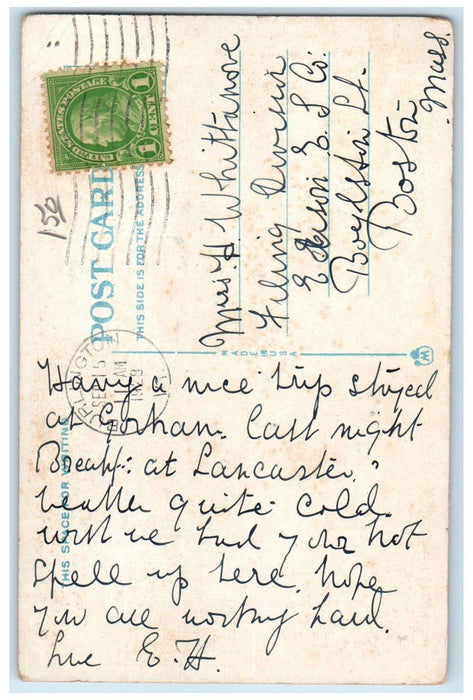 UNITED STATES POSTAGE
1 1
CENT
156
POST CARD
THIS SIDE IS FOR THE ADDRESS
Miss. H. Whittanove
Filing Division
Edison E. I Co.
Boylston St.
Boston
Mass.
MADE IN USA
W
BURLINGTON
SEP 15
AM
THIS SPACE FOR WRITING
Having a nice trip stayed
at Gorham. last night
Breakf: at Lancaster.
weather quite cold.
wish we had your hot
spell up here. hope
you are working hard.
Luv E. H.